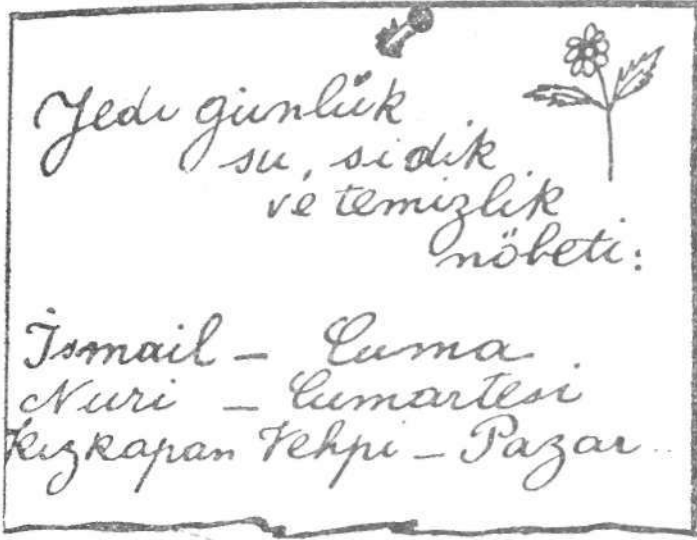 Yedi günlük
su, sidik
ve temizlik
nöbeti:
İsmail – Cuma
Nuri – Cumartesi
Kızkapan Vehpi – Pazar..